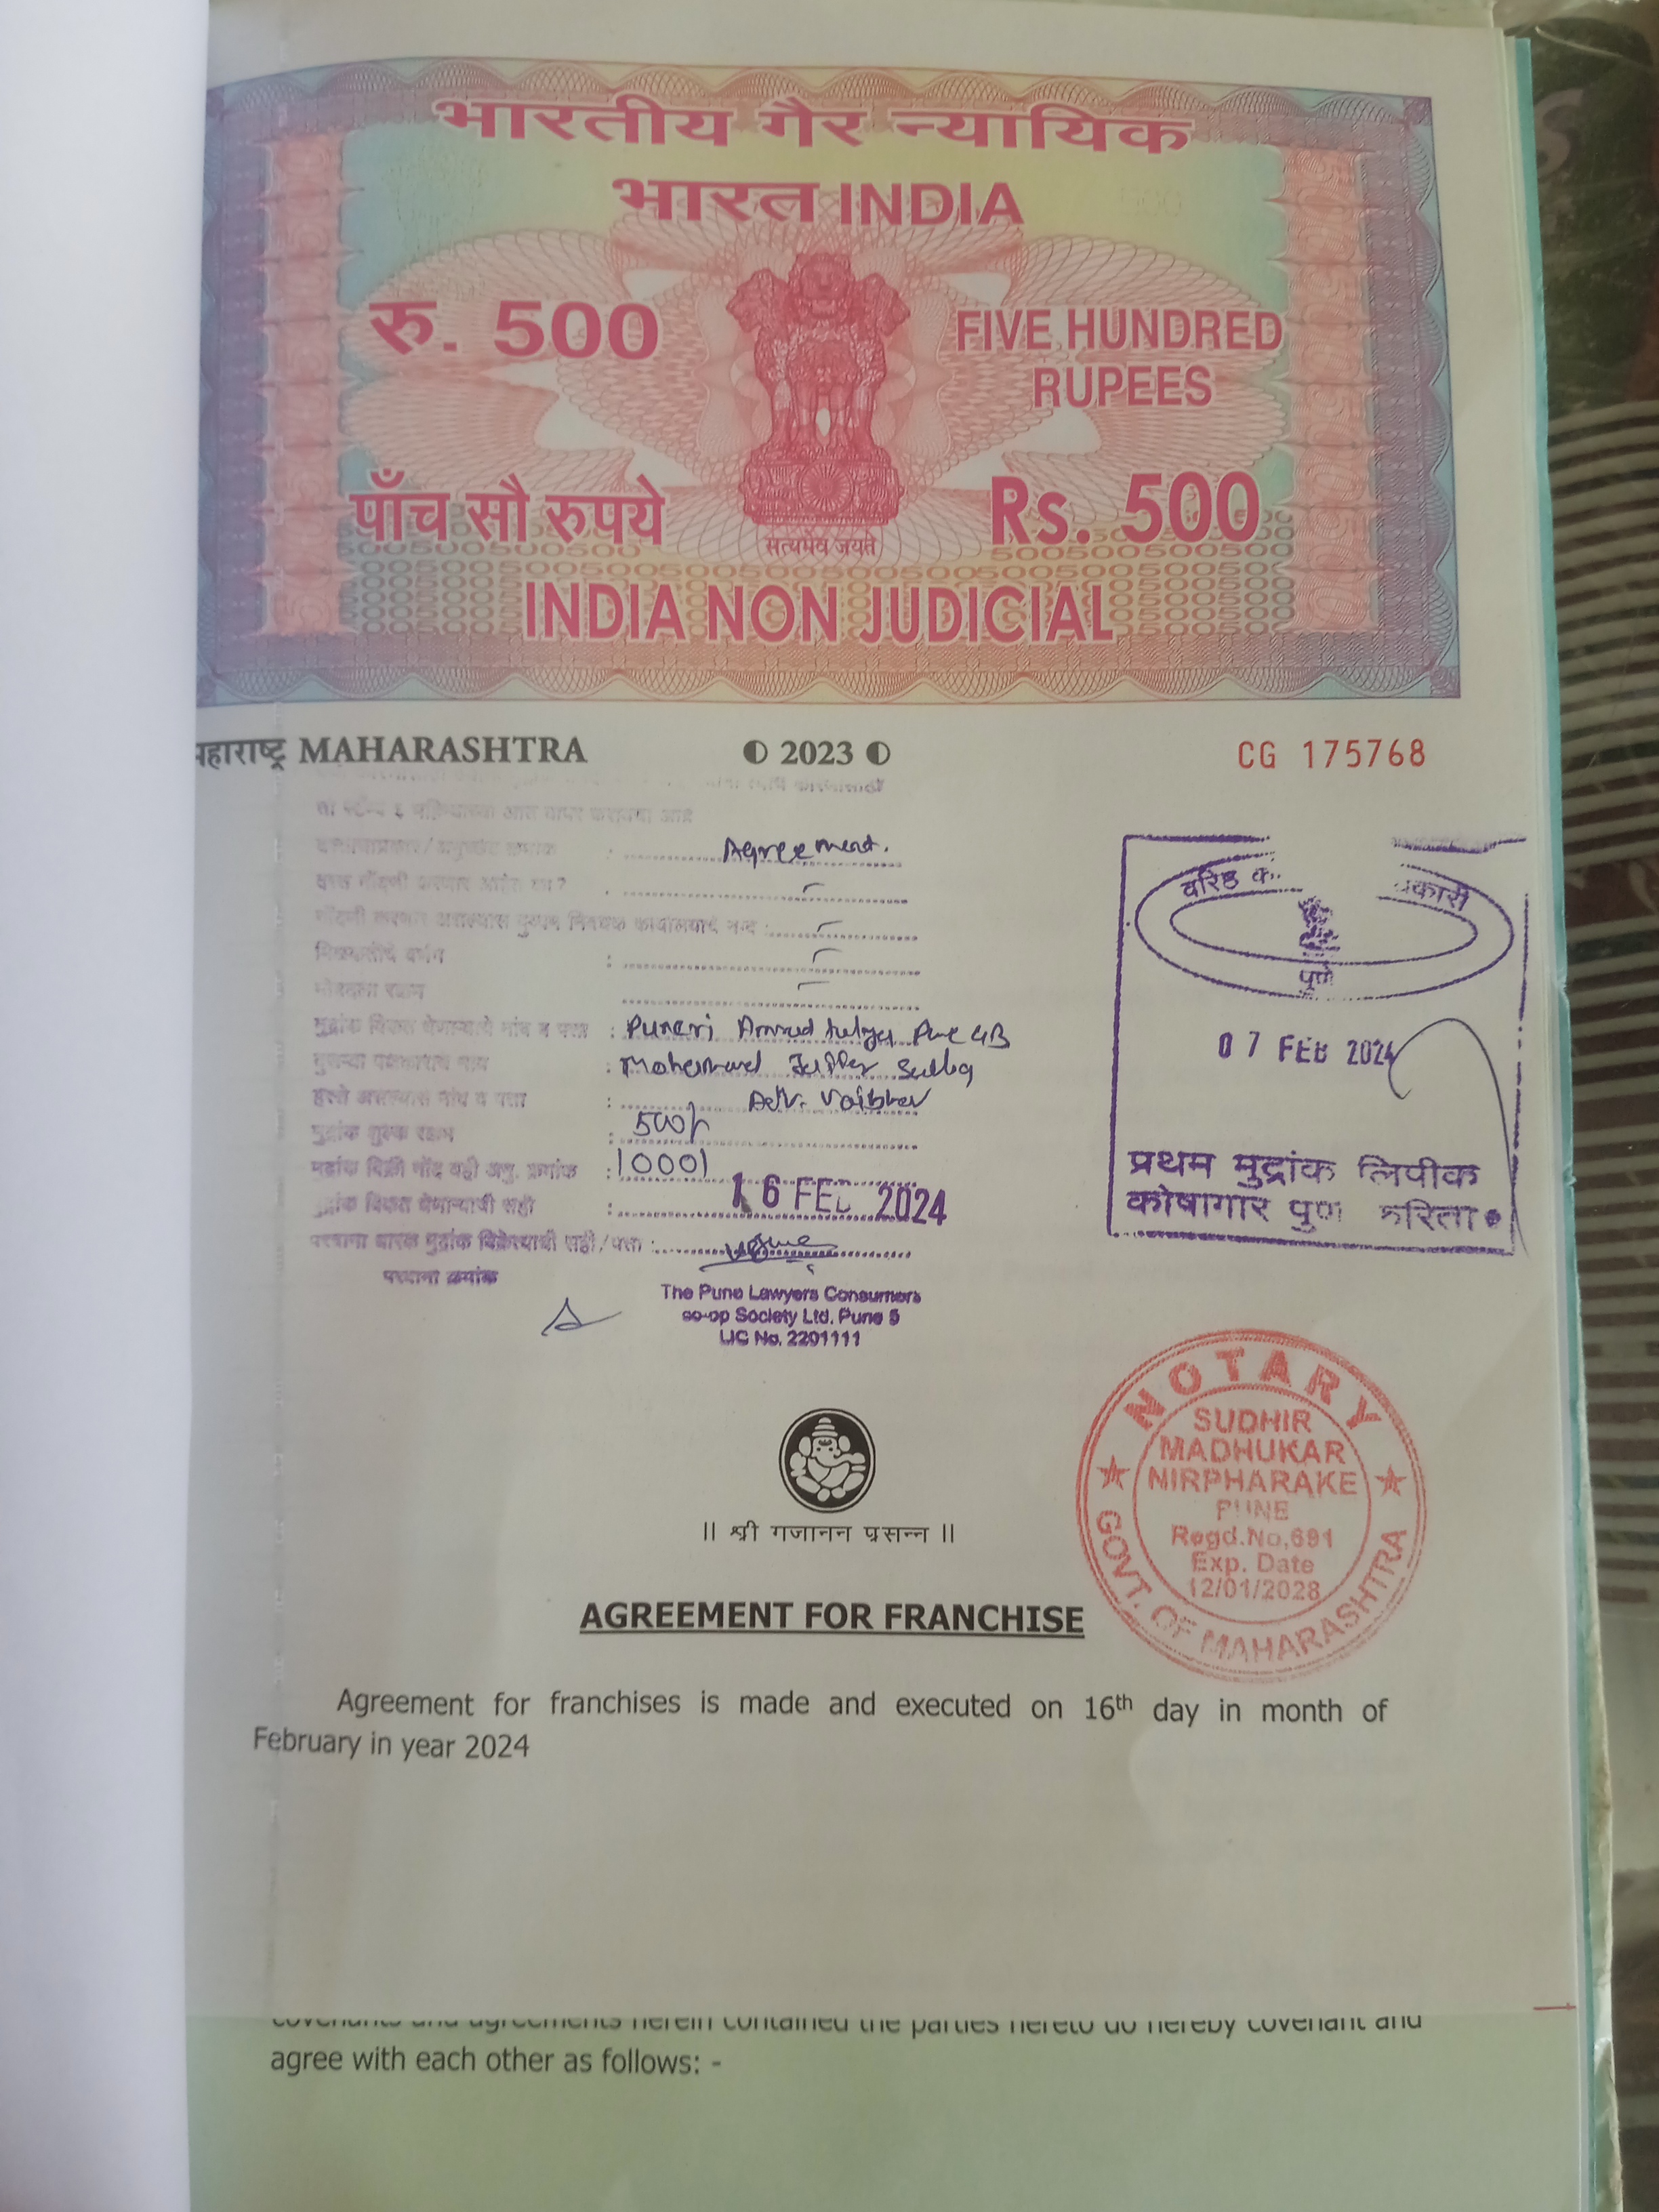 भारतीय गैर न्यायिक
भारत INDIA
रु. 500
FIVE HUNDRED
RUPEES
पाँच सौ रुपये
Rs. 500
सत्यमेव जयते
INDIA NON JUDICIAL
महाराष्ट्र MAHARASHTRA
2023
CG 175768
Agreement.
नोंदणी करणार असल्यास दुय्यम निबंधक कार्यालयाचे नाव :
मिळकतीचे वर्णन :
मोबदला रक्कम
मुद्रांक विकत घेणाऱ्याचे नांव व पत्ता : Puneri
दुसऱ्या पक्षकाराचे नाव :
हस्ते असल्यास नांव व पत्ता : Adv. Vaibhav
मुद्रांक शुल्क रक्कम : 500/-
मुद्रांक विक्री नोंद वही अनु. क्रमांक : 10001
मुद्रांक विकत घेणाऱ्याची सही : 16 FEB 2024
परवाना धारक मुद्रांक विक्रेत्याची सही/पत्ता :
परवाना क्रमांक
The Pune Lawyers Consumers
co-op Society Ltd. Pune 5
LIC No. 2201111
वरिष्ठ
पुणे
07 FEB 2024
प्रथम मुद्रांक लिपीक
कोषागार पुणे करिता
NOTARY
SUDHIR
MADHUKAR
NIRPHARAKE
PUNE
Regd.No,691
Exp. Date
12/01/2028
GOVT. OF MAHARASHTRA
॥ श्री गजानन प्रसन्न ॥
AGREEMENT FOR FRANCHISE
Agreement for franchises is made and executed on 16th day in month of
February in year 2024
covenants and agreements herein contained the parties hereto do hereby covenant and
agree with each other as follows: -